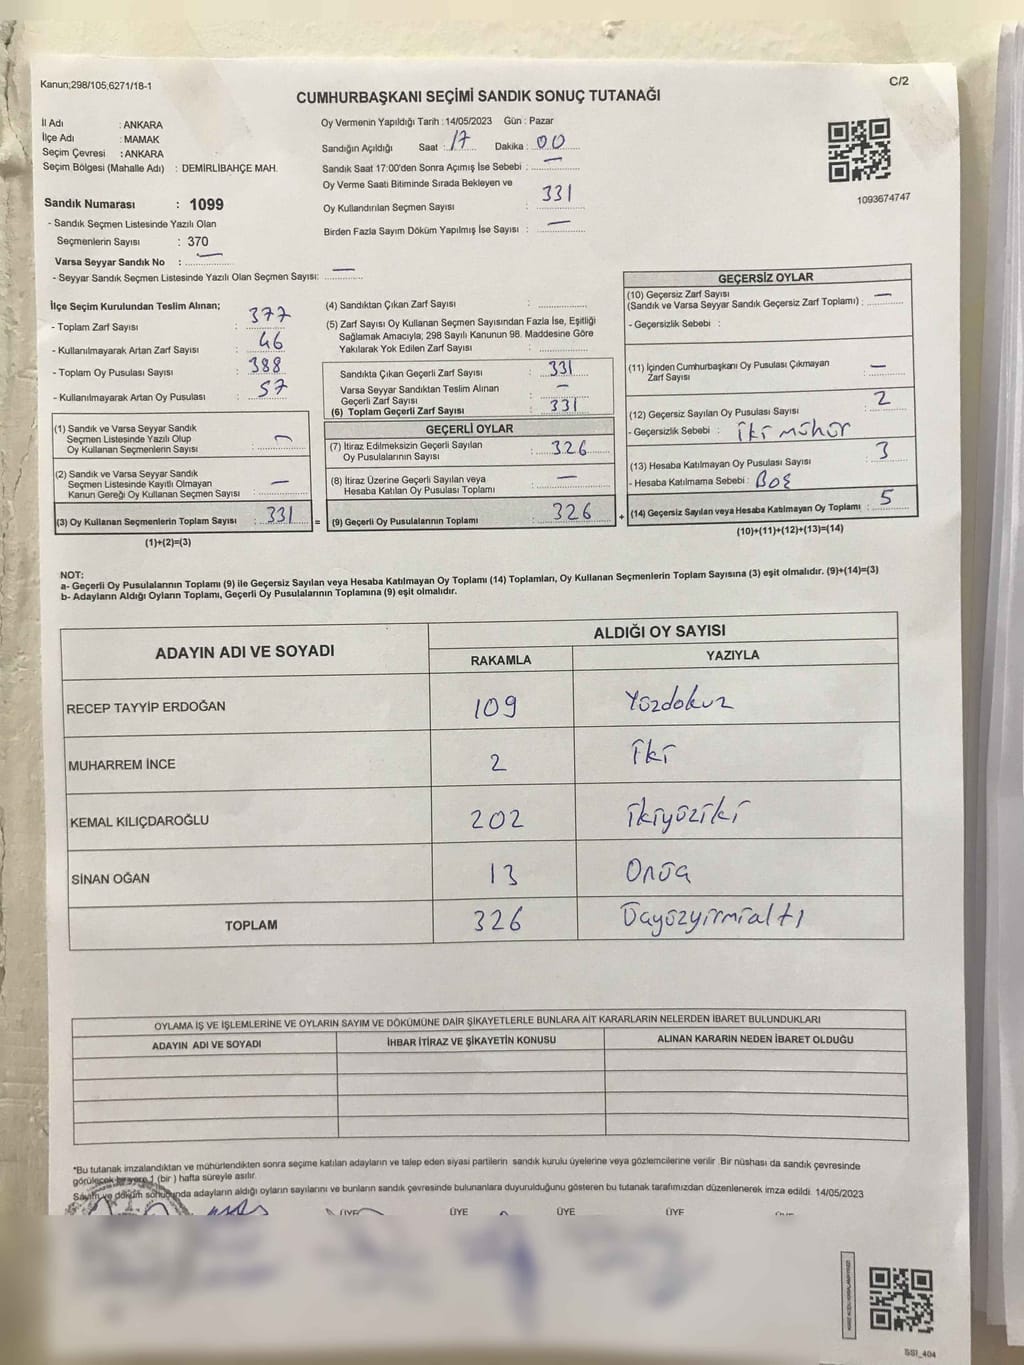 Kanun;298/105,6271/18-1
C/2
CUMHURBAŞKANI SEÇİMİ SANDIK SONUÇ TUTANAĞI
İl Adı : ANKARA
İlçe Adı : MAMAK
Seçim Çevresi : ANKARA
Seçim Bölgesi (Mahalle Adı) : DEMİRLİBAHÇE MAH.
Sandık Numarası : 1099
- Sandık Seçmen Listesinde Yazılı Olan
Seçmenlerin Sayısı : 370
Varsa Seyyar Sandık No : —
- Seyyar Sandık Seçmen Listesinde Yazılı Olan Seçmen Sayısı: —
Oy Vermenin Yapıldığı Tarih : 14/05/2023 Gün : Pazar
Sandığın Açıldığı Saat : 17 Dakika : 00
Sandık Saat 17:00'den Sonra Açımış İse Sebebi : —
Oy Verme Saati Bitiminde Sırada Bekleyen ve
Oy Kullandırılan Seçmen Sayısı : 331
Birden Fazla Sayım Döküm Yapılmış İse Sayısı : —
1093674747
İlçe Seçim Kurulundan Teslim Alınan;
- Toplam Zarf Sayısı : 377
- Kullanılmayarak Artan Zarf Sayısı : 46
- Toplam Oy Pusulası Sayısı : 388
- Kullanılmayarak Artan Oy Pusulası : 57
(1) Sandık ve Varsa Seyyar Sandık
Seçmen Listesinde Yazılı Olup
Oy Kullanan Seçmenlerin Sayısı : —
(2) Sandık ve Varsa Seyyar Sandık
Seçmen Listesinde Kayıtlı Olmayan
Kanun Gereği Oy Kullanan Seçmen Sayısı : —
(3) Oy Kullanan Seçmenlerin Toplam Sayısı : 331 =
(1)+(2)=(3)
(4) Sandıktan Çıkan Zarf Sayısı :
(5) Zarf Sayısı Oy Kullanan Seçmen Sayısından Fazla İse, Eşitliği
Sağlamak Amacıyla; 298 Sayılı Kanunun 98. Maddesine Göre
Yakılarak Yok Edilen Zarf Sayısı :
Sandıkta Çıkan Geçerli Zarf Sayısı : 331
Varsa Seyyar Sandıktan Teslim Alınan
Geçerli Zarf Sayısı : —
(6) Toplam Geçerli Zarf Sayısı : 331
GEÇERLİ OYLAR
(7) İtiraz Edilmeksizin Geçerli Sayılan
Oy Pusulalarının Sayısı : 326
(8) İtiraz Üzerine Geçerli Sayılan veya
Hesaba Katılan Oy Pusulası Toplamı : —
(9) Geçerli Oy Pusulalarının Toplamı : 326 +
GEÇERSİZ OYLAR
(10) Geçersiz Zarf Sayısı
(Sandık ve Varsa Seyyar Sandık Geçersiz Zarf Toplamı) : —
- Geçersizlik Sebebi :
(11) İçinden Cumhurbaşkanı Oy Pusulası Çıkmayan
Zarf Sayısı : —
(12) Geçersiz Sayılan Oy Pusulası Sayısı : 2
- Geçersizlik Sebebi : İki mühür
(13) Hesaba Katılmayan Oy Pusulası Sayısı : 3
- Hesaba Katılmama Sebebi : Boş
(14) Geçersiz Sayılan veya Hesaba Katılmayan Oy Toplamı : 5
(10)+(11)+(12)+(13)=(14)
NOT:
a- Geçerli Oy Pusulalarının Toplamı (9) ile Geçersiz Sayılan veya Hesaba Katılmayan Oy Toplamı (14) Toplamları, Oy Kullanan Seçmenlerin Toplam Sayısına (3) eşit olmalıdır. (9)+(14)=(3)
b- Adayların Aldığı Oyların Toplamı, Geçerli Oy Pusulalarının Toplamına (9) eşit olmalıdır.
ADAYIN ADI VE SOYADI
ALDIĞI OY SAYISI
RAKAMLA YAZIYLA
RECEP TAYYİP ERDOĞAN 109 Yüzdokuz
MUHARREM İNCE 2 İki
KEMAL KILIÇDAROĞLU 202 İkiyüziki
SİNAN OĞAN 13 Onüç
TOPLAM 326 Üçyüzyirmialtı
OYLAMA İŞ VE İŞLEMLERİNE VE OYLARIN SAYIM VE DÖKÜMÜNE DAİR ŞİKAYETLERLE BUNLARA AİT KARARLARIN NELERDEN İBARET BULUNDUKLARI
ADAYIN ADI VE SOYADI İHBAR İTİRAZ VE ŞİKAYETİN KONUSU ALINAN KARARIN NEDEN İBARET OLDUĞU
*Bu tutanak imzalandıktan ve mühürlendikten sonra seçime katılan adayların ve talep eden siyasi partilerin sandık kurulu üyelerine veya gözlemcilerine verilir. Bir nüshası da sandık çevresinde
görülecek bir yere 1 (bir) hafta süreyle asılır.
Sayım ve döküm sonucunda adayların aldığı oyların sayılarını ve bunların sandık çevresinde bulunanlara duyurulduğunu gösteren bu tutanak tarafımızdan düzenlenerek imza edildi. 14/05/2023
ÜYE ÜYE ÜYE ÜYE
SSI_404